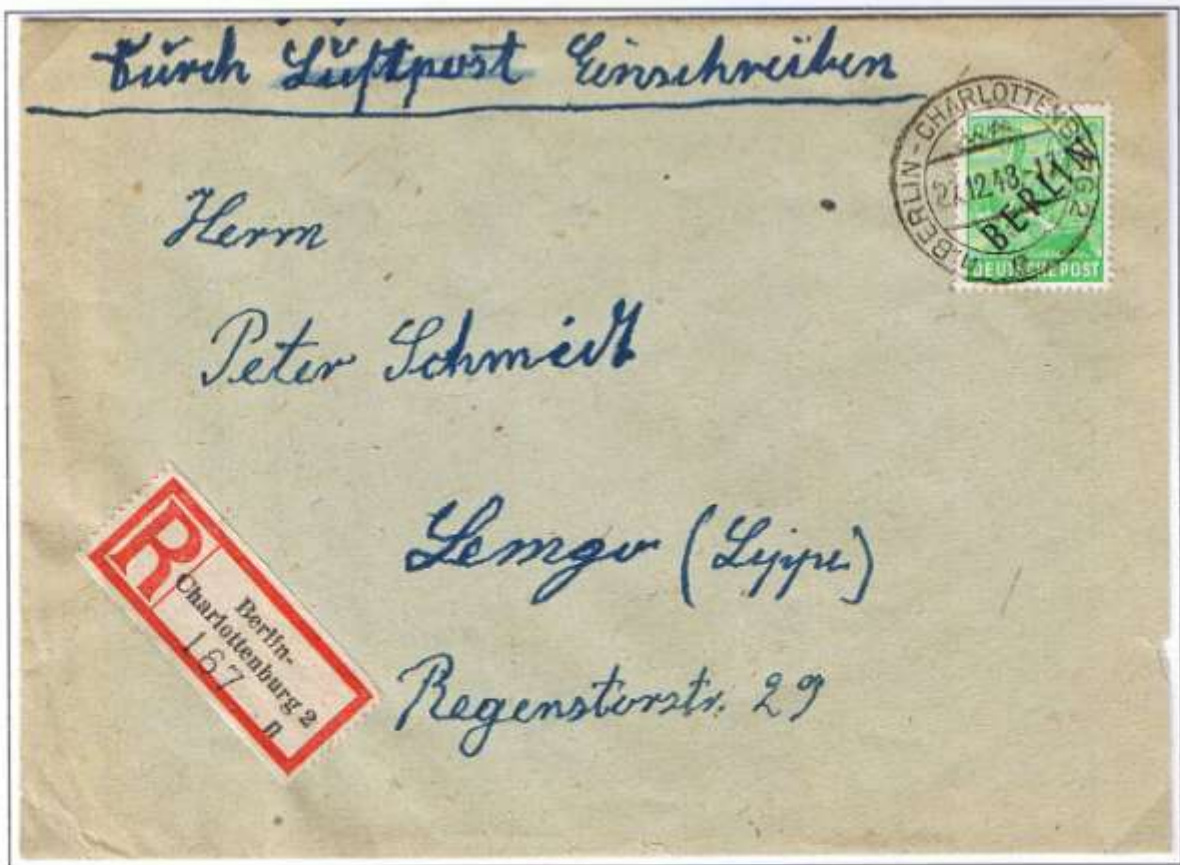 Durch Luftpost Einschreiben
BERLIN-CHARLOTTENBURG 2
27.12.48
BERLIN
DEUTSCHE POST
Herrn
Peter Schmidt
Lemgo (Lippe)
Regenstorstr. 29
R
Berlin-
Charlottenburg 2
167
n